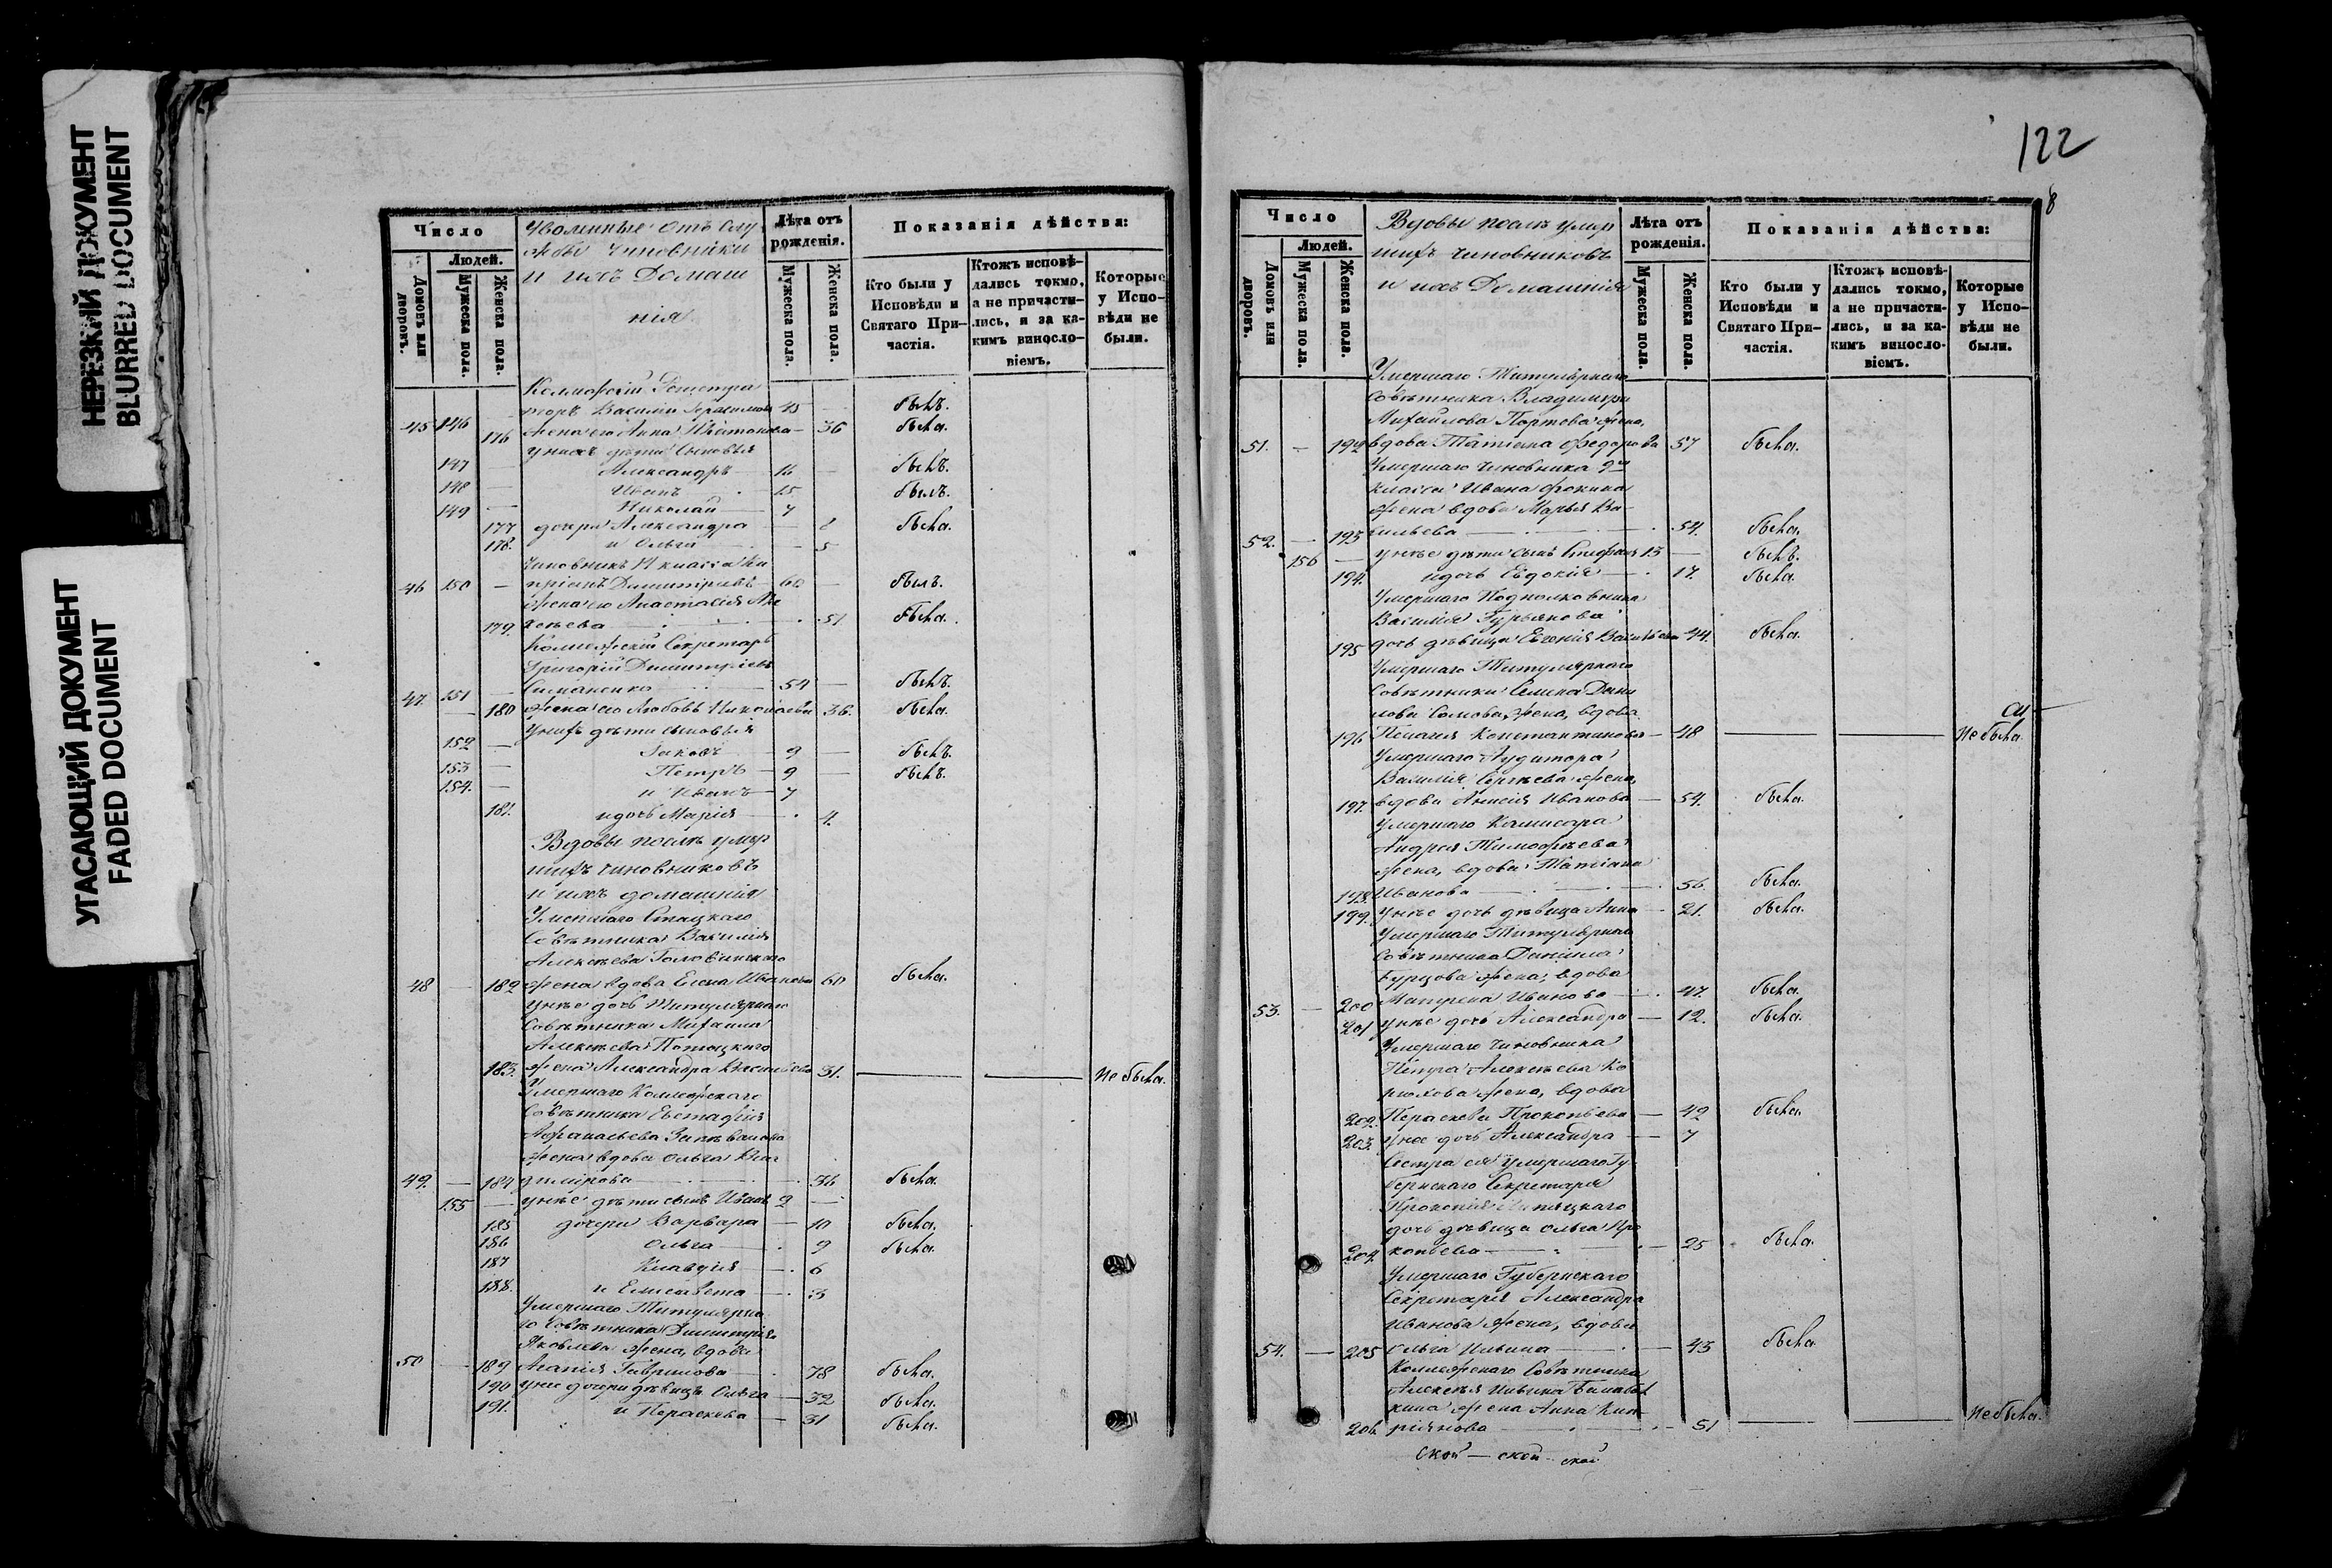 НЕРЕЗКИЙ ДОКУМЕНТ
BLURRED DOCUMENT
УГАСАЮЩИЙ ДОКУМЕНТ
FADED DOCUMENT
Число
Людей.
Домовъ или дворовъ.
Мужеска пола.
Женска пола.
Уволенные отъ слу
жбы чиновники
и ихъ домаш
нія
Лѣта отъ рожденія.
Мужеска пола.
Женска пола.
Показанія дѣйства:
Кто были у Исповѣди и Святаго Причастія.
Ктожъ исповѣдались токмо, а не причастились, и за какимъ винословіемъ.
Которые у Исповѣди не были.
Коллежскій Регистра
45 146 — торъ Василий Герасимовъ 45 — былъ.
176 жена его Анна — 36 была.
у нихъ дѣти сыновья
147 — Александръ — 16 — былъ.
148 — Иванъ — 15 былъ.
149 — Николай — 7
177 дочери Александра — 8 была.
178. и Ольга — 5
Чиновникъ класса Ки
46 150 — пріанъ Димитріевъ — 60 — былъ.
жена его Анастасія Але
179. ксѣева — 51 была.
Коллежскій Секретарь
Григорій Димитріевъ
47. 151 — Симоненко — 54 — былъ.
— 180 жена его Любовь Николаева 36. была.
У нихъ дѣти сыновья
152 — Іаковъ — 9 — былъ.
153 — Петръ — 9 — былъ.
154. — и Иванъ — 7
181. и дочь Марія — 4.
Вдовы послѣ умер
шихъ чиновниковъ
и ихъ домашнія
Умершаго Статскаго
Совѣтника Василія
Алексѣева Головинскаго
48 — 182 жена вдова Елена Иванова 60 была.
у нее дочь Титулярнаго
Совѣтника Михаила
Алексѣева Потоцкаго
183. жена Александра Васильева 31. — — Не была.
Умершаго Коллежскаго
Совѣтника Евстафія
Афанасьева
жена вдова Ольга Вла
49. — 184 димірова — 36 была.
155 — у нее дѣти сынъ Иванъ 2 —
185 дочери Варвара — 10 была.
186 Ольга — 9 была.
187 Клавдія — 6
188. и Елисавета — 3
Умершаго Титулярна
го Совѣтника Димитрія
Яковлева жена, вдова
50 — 189 Агапія Гаврилова — 78 была.
190 у нее дочери дѣвицы Ольга — 32 была.
191. и Пераскева — 31 была.
122
8
Число
Людей.
Домовъ или дворовъ.
Мужеска пола.
Женска пола.
Вдовы послѣ умер
шихъ чиновниковъ
и ихъ домашнія
Лѣта отъ рожденія.
Мужеска пола.
Женска пола.
Показанія дѣйства:
Кто были у Исповѣди и Святаго Причастія.
Ктожъ исповѣдались токмо, а не причастились, и за какимъ винословіемъ.
Которые у Исповѣди не были.
Умершаго Титулярнаго
Совѣтника Владиміра
Михайлова Портова жена,
51. — 192 вдова Татіана Федорова 57 была.
Умершаго чиновника 9го
класса Ивана Фокина
жена вдова Марья Ва
52. — 193 сильева — 54. была.
156 — у нее дѣти сынъ Стефанъ 13 — былъ.
194. и дочь Евдокія — 17. была.
Умершаго Подполковника
Василія Гурьянова
195 дочь дѣвица Евгенія Васильева 44. была.
Умершаго Титулярнаго
Совѣтника Семена Дани
лова Сомова, жена, вдова
196 Пелагія Константинова — 48 — — Не была.
Умершаго Аудитора
Василія Сергѣева жена,
197. вдова Анисія Иванова — 54. была.
Умершаго Комисара
Андрея Тимофѣева
жена, вдова Татіана
198. Иванова — 56. была.
199. у нее дочь дѣвица Анна — 21. была.
Умершаго Титулярнаго
Совѣтника Даніила
Бурцова жена, вдова
53. — 200 Матрена Иванова — 47. была.
201 у нее дочь Александра — 12. была.
Умершаго чиновника
Петра Алексѣева Ко
рюхова жена, вдова
202. Пераскева Прокопьева — 42 была.
203. у нее дочь Александра — 7
Сестра ея умершаго Гу
бернскаго Секретаря
Прокопія
дочь дѣвица Ольга Про
204. копьева — 25 была.
Умершаго Губернскаго
Секретаря Александра
Иванова жена, вдова
54. — 205 Ольга Ильина — 43 была.
Коллежскаго Совѣтника
Алексѣя Ильина
жена Анна Кип
206. ріянова — 51 — — Не была.
ской — ской — ской